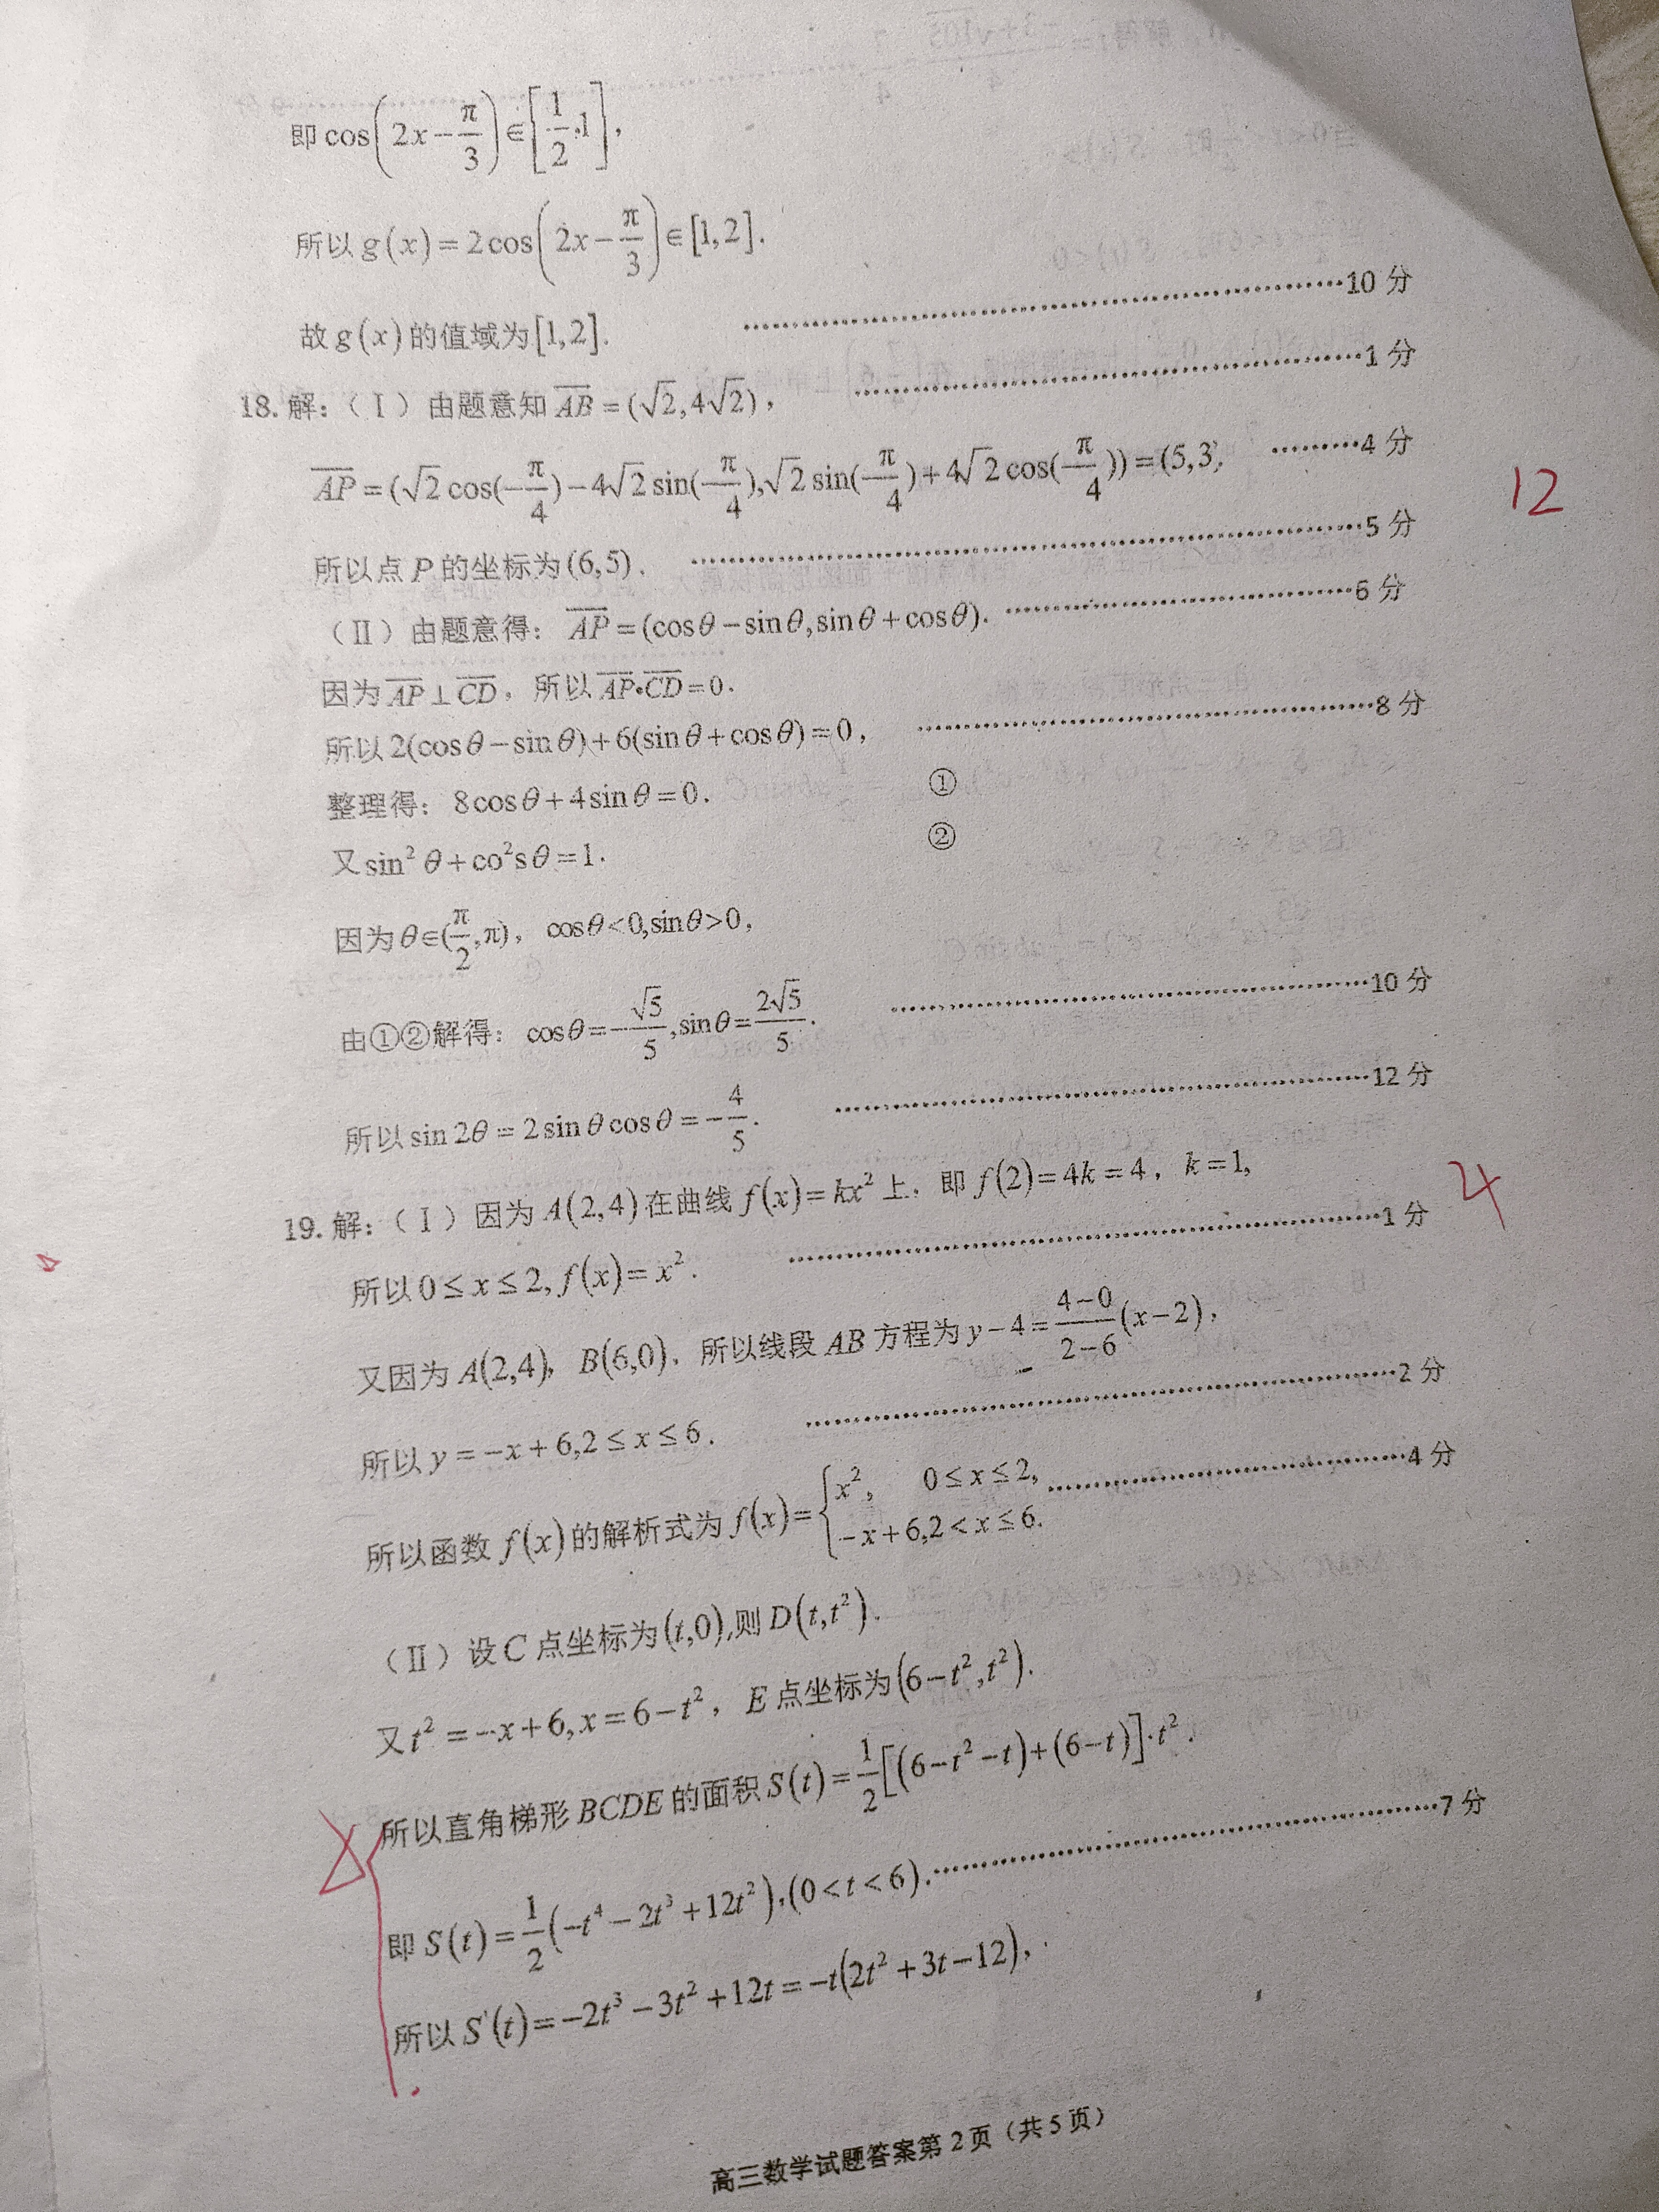 即 cos(2x−π/3)∈[1/2,1],
所以 g(x)=2cos(2x−π/3)∈[1,2].
故 g(x) 的值域为[1,2]. ………10 分
18. 解:（Ⅰ）由题意知 AB=(√2,4√2)， ………1 分
AP=(√2cos(−π/4)−4√2sin(−π/4),√2sin(−π/4)+4√2cos(−π/4))=(5,3) ………4 分
所以点 P 的坐标为(6,5). ………5 分
（Ⅱ）由题意得: AP=(cosθ−sinθ,sinθ+cosθ). ………6 分
因为 AP⊥CD，所以 AP•CD=0.
所以 2(cosθ−sinθ)+6(sinθ+cosθ)=0, ………8 分
整理得: 8cosθ+4sinθ=0. ①
又 sin²θ+co²sθ=1. ②
因为 θ∈(π/2,π)， cosθ<0,sinθ>0,
由①②解得: cosθ=−√5/5,sinθ=2√5/5. ………10 分
所以 sin2θ=2sinθcosθ=−4/5. ………12 分
19. 解:（Ⅰ）因为 A(2,4)在曲线 f(x)=kx² 上，即 f(2)=4k=4，k=1,
所以 0≤x≤2, f(x)=x². ………1 分
又因为 A(2,4)，B(6,0)，所以线段 AB 方程为 y−4=(4−0)/(2−6)(x−2),
所以 y=−x+6,2≤x≤6. ………2 分
所以函数 f(x)的解析式为 f(x)={x², 0≤x≤2, ………4 分
−x+6,2<x≤6.
（Ⅱ）设 C 点坐标为(t,0),则 D(t,t²).
又 t²=−x+6,x=6−t²，E 点坐标为(6−t²,t²).
所以直角梯形 BCDE 的面积 S(t)=1/2[(6−t²−t)+(6−t)]·t².
即 S(t)=1/2(−t⁴−2t³+12t²),(0<t<6). ………7 分
所以 S'(t)=−2t³−3t²+12t=−t(2t²+3t−12),
高三数学试题答案第 2 页（共 5 页）
12
4